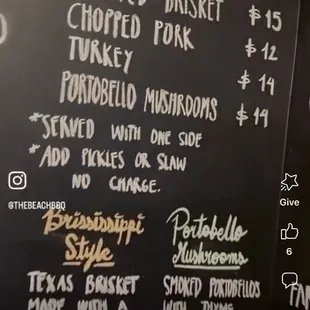 BRISKET $15
CHOPPED PORK $12
TURKEY $14
PORTOBELLO MUSHROOMS $14
*SERVED WITH ONE SIDE
*ADD PICKLES OR SLAW
NO CHARGE.
@THEBEACHBBQ
Give
6
Brississippi
Style
TEXAS BRISKET
MADE WITH A
Portobello
Mushrooms
SMOKED PORTOBELLOS
WITH THYME